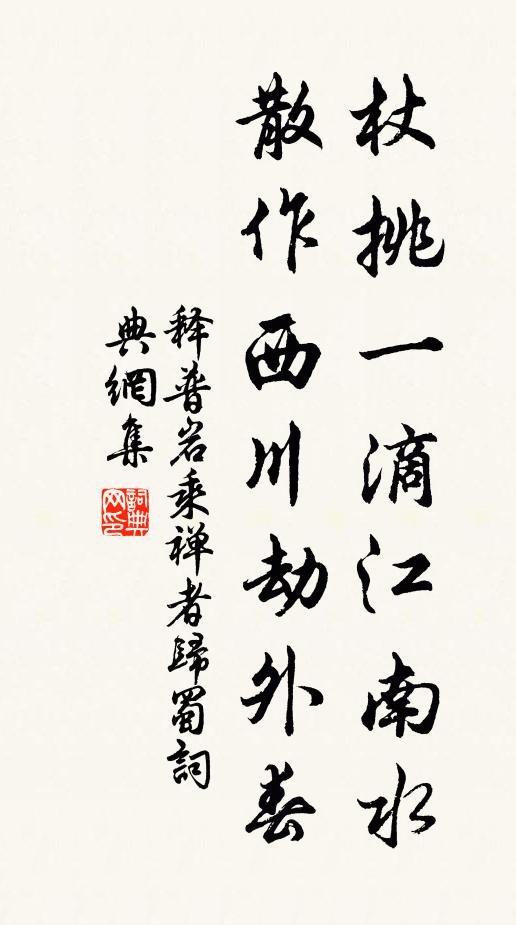 杖挑一滴江南水
散作西川劫外春
释普岩乘禅者歸蜀詞
典網集
詞典网印